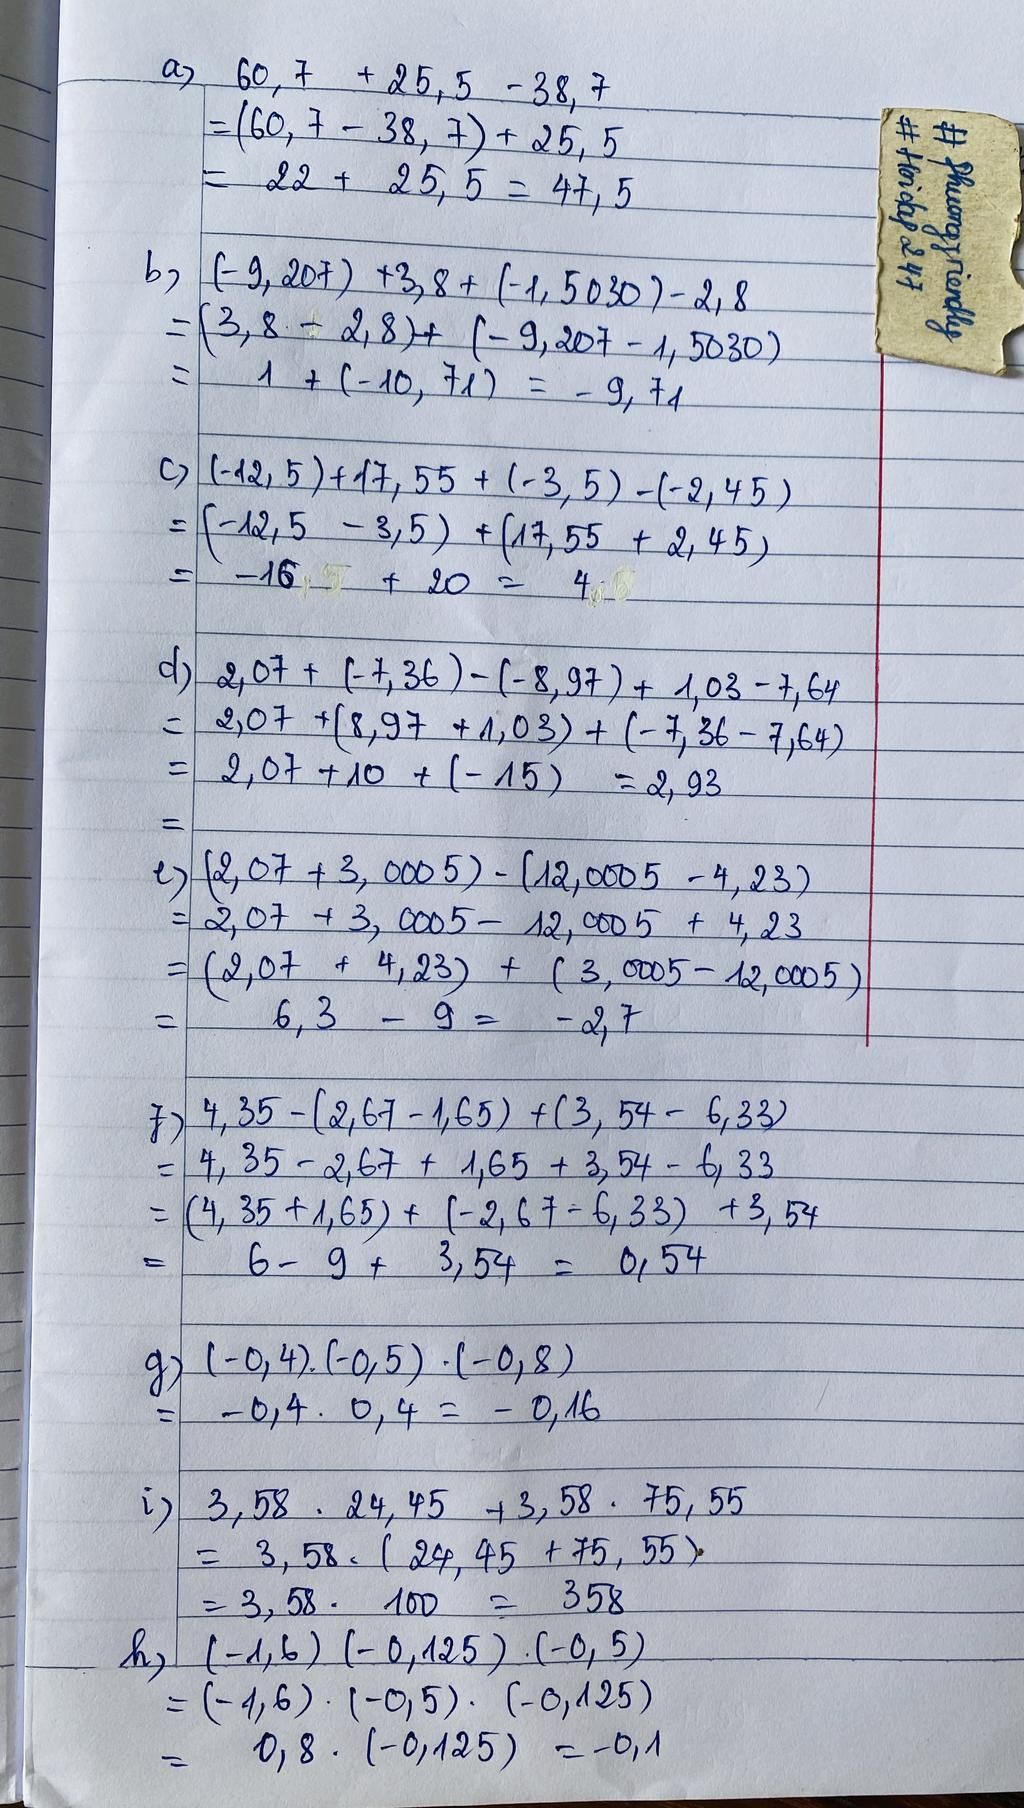 a) 60,7 + 25,5 - 38,7
= (60,7 - 38,7) + 25,5
= 22 + 25,5 = 47,5
b) (-9,207) + 3,8 + (-1,5030) - 2,8
= (3,8 - 2,8) + (-9,207 - 1,5030)
= 1 + (-10,71) = -9,71
c) (-12,5) + 17,55 + (-3,5) - (-2,45)
= (-12,5 - 3,5) + (17,55 + 2,45)
= -16 + 20 = 4
d) 2,07 + (-7,36) - (-8,97) + 1,03 - 7,64
= 2,07 + (8,97 + 1,03) + (-7,36 - 7,64)
= 2,07 + 10 + (-15) = 2,93
=
e) (2,07 + 3,0005) - (12,0005 - 4,23)
= 2,07 + 3,0005 - 12,0005 + 4,23
= (2,07 + 4,23) + (3,0005 - 12,0005)
= 6,3 - 9 = -2,7
f) 4,35 - (2,67 - 1,65) + (3,54 - 6,33)
= 4,35 - 2,67 + 1,65 + 3,54 - 6,33
= (4,35 + 1,65) + (-2,67 - 6,33) + 3,54
= 6 - 9 + 3,54 = 0,54
g) (-0,4).(-0,5).(-0,8)
= -0,4 . 0,4 = -0,16
i) 3,58 . 24,45 + 3,58 . 75,55
= 3,58 . (24,45 + 75,55)
= 3,58 . 100 = 358
h) (-1,6) (-0,125) . (-0,5)
= (-1,6) . (-0,5) . (-0,125)
= 0,8 . (-0,125) = -0,1
# phuongfriendly
# Hoidap247